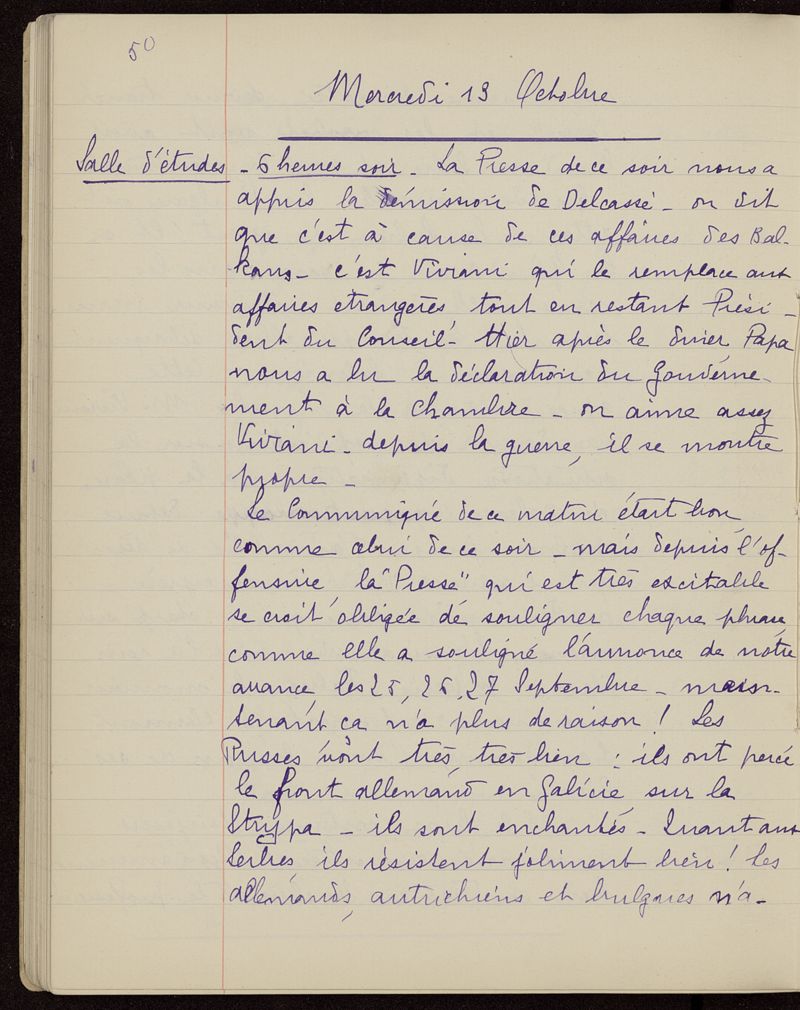 50
Mercredi 13 Octobre
Salle d'études - 6 heures soir - La Presse de ce soir nous a
appris la démission de Delcassé - on dit
que c'est à cause de ces affaires des Bal-
kans - c'est Viviani qui le remplace aux
affaires étrangères tout en restant Prési-
dent du Conseil - Hier après le diner Papa
nous a lu la déclaration du Gouverne-
ment à la Chambre - on aime assez
Viviani - depuis la guerre, il se montre
propre -
Le Communiqué de ce matin était bon
comme celui de ce soir - mais depuis l'of-
fensive, la "Presse" qui est très excitable
se croit obligée de souligner chaque phrase,
comme elle a souligné l'annonce de notre
avance les 25, 26, 27 Septembre - main-
tenant ça n'a plus de raison ! Les
Russes vont très, très bien : ils ont percé
le front allemand en Galicie, sur la
Strypa - ils sont enchantés - Quant aux
Serbes, ils résistent joliment bien ! les
allemands, autrichiens et bulgares n'a-